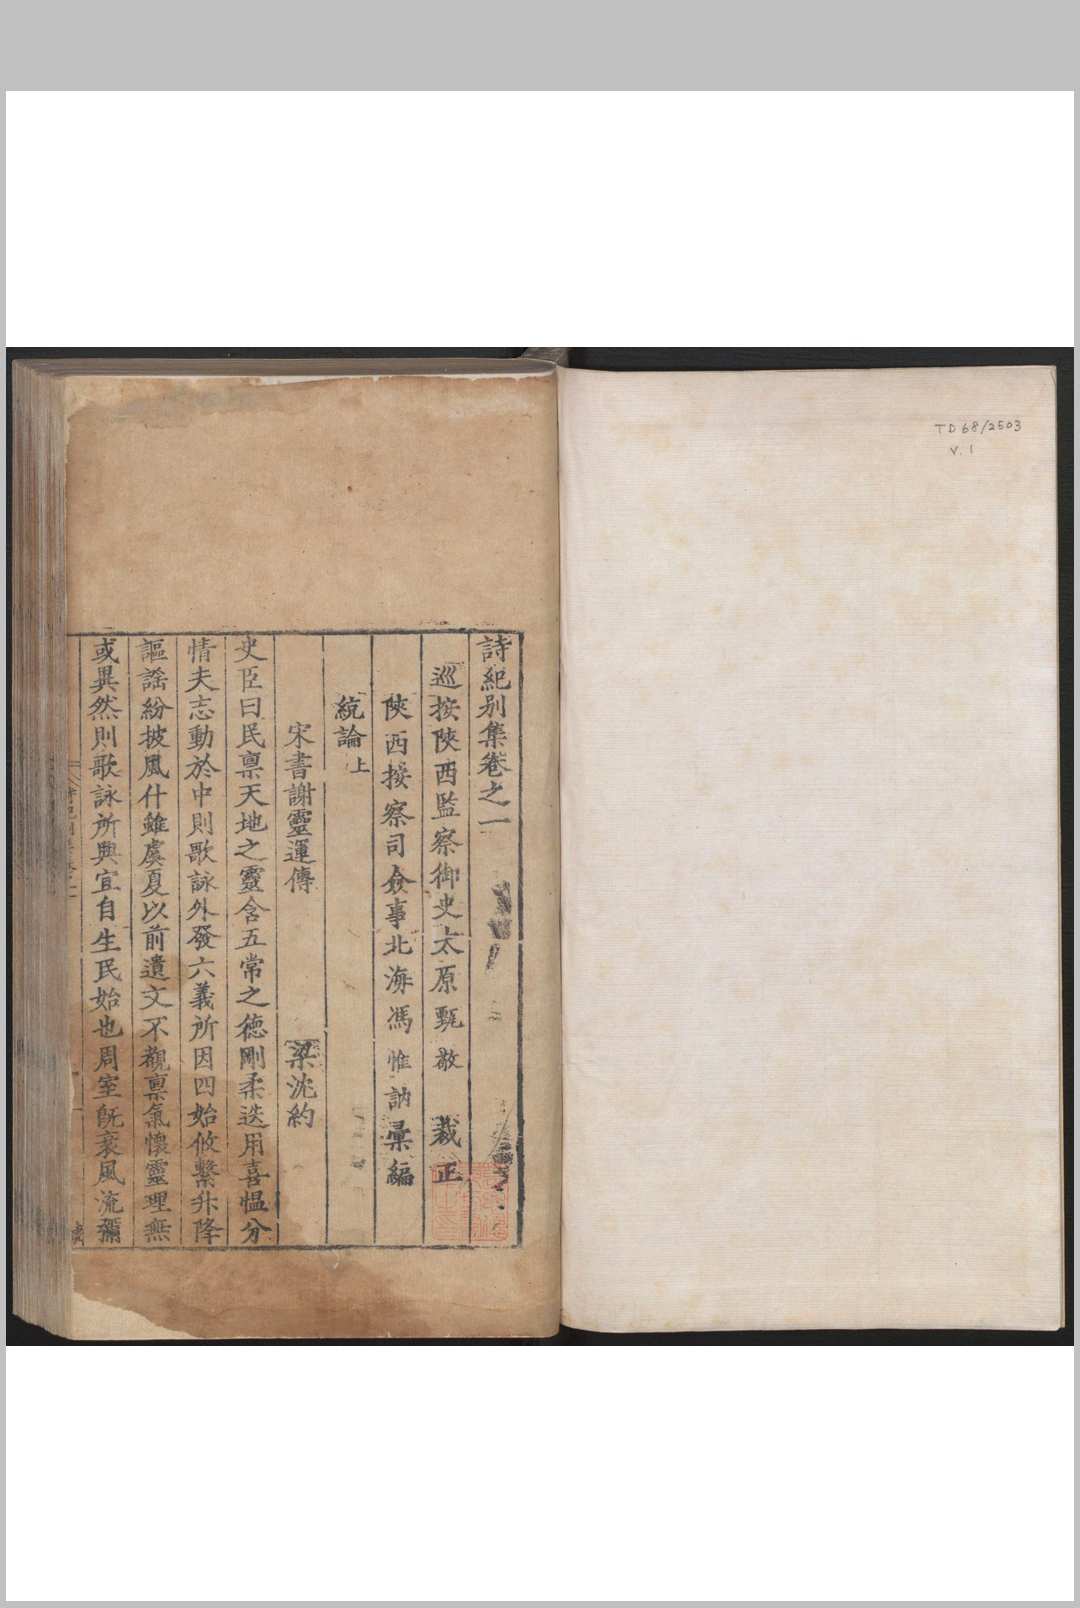 TD68/2503
V. 1
詩紀別集卷之一
巡按陝西監察御史太原甄敬裁正
陝西按察司僉事北海馮惟訥彙編
統論上
宋書謝靈運傳 梁沈約
史臣曰民禀天地之靈含五常之德剛柔迭用喜慍分
情夫志動於中則歌詠外發六義所因四始攸繫升降
謳謠紛披風什雖虞夏以前遺文不覩禀氣懷靈理無
或異然則歌詠所興宜自生民始也周室旣衰風流彌